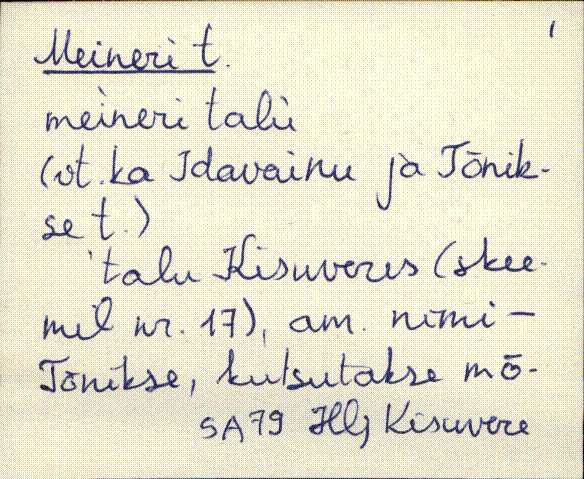 1
Meineri t.
mèineri talù
(vt. ka Idavainu ja Tõnik-
se t.)
'talu Kisuveres (skee-
mil nr. 17), am. nimi –
Tõnikse, kutsutakse mõ-
SA79 Hlj Kisuvere